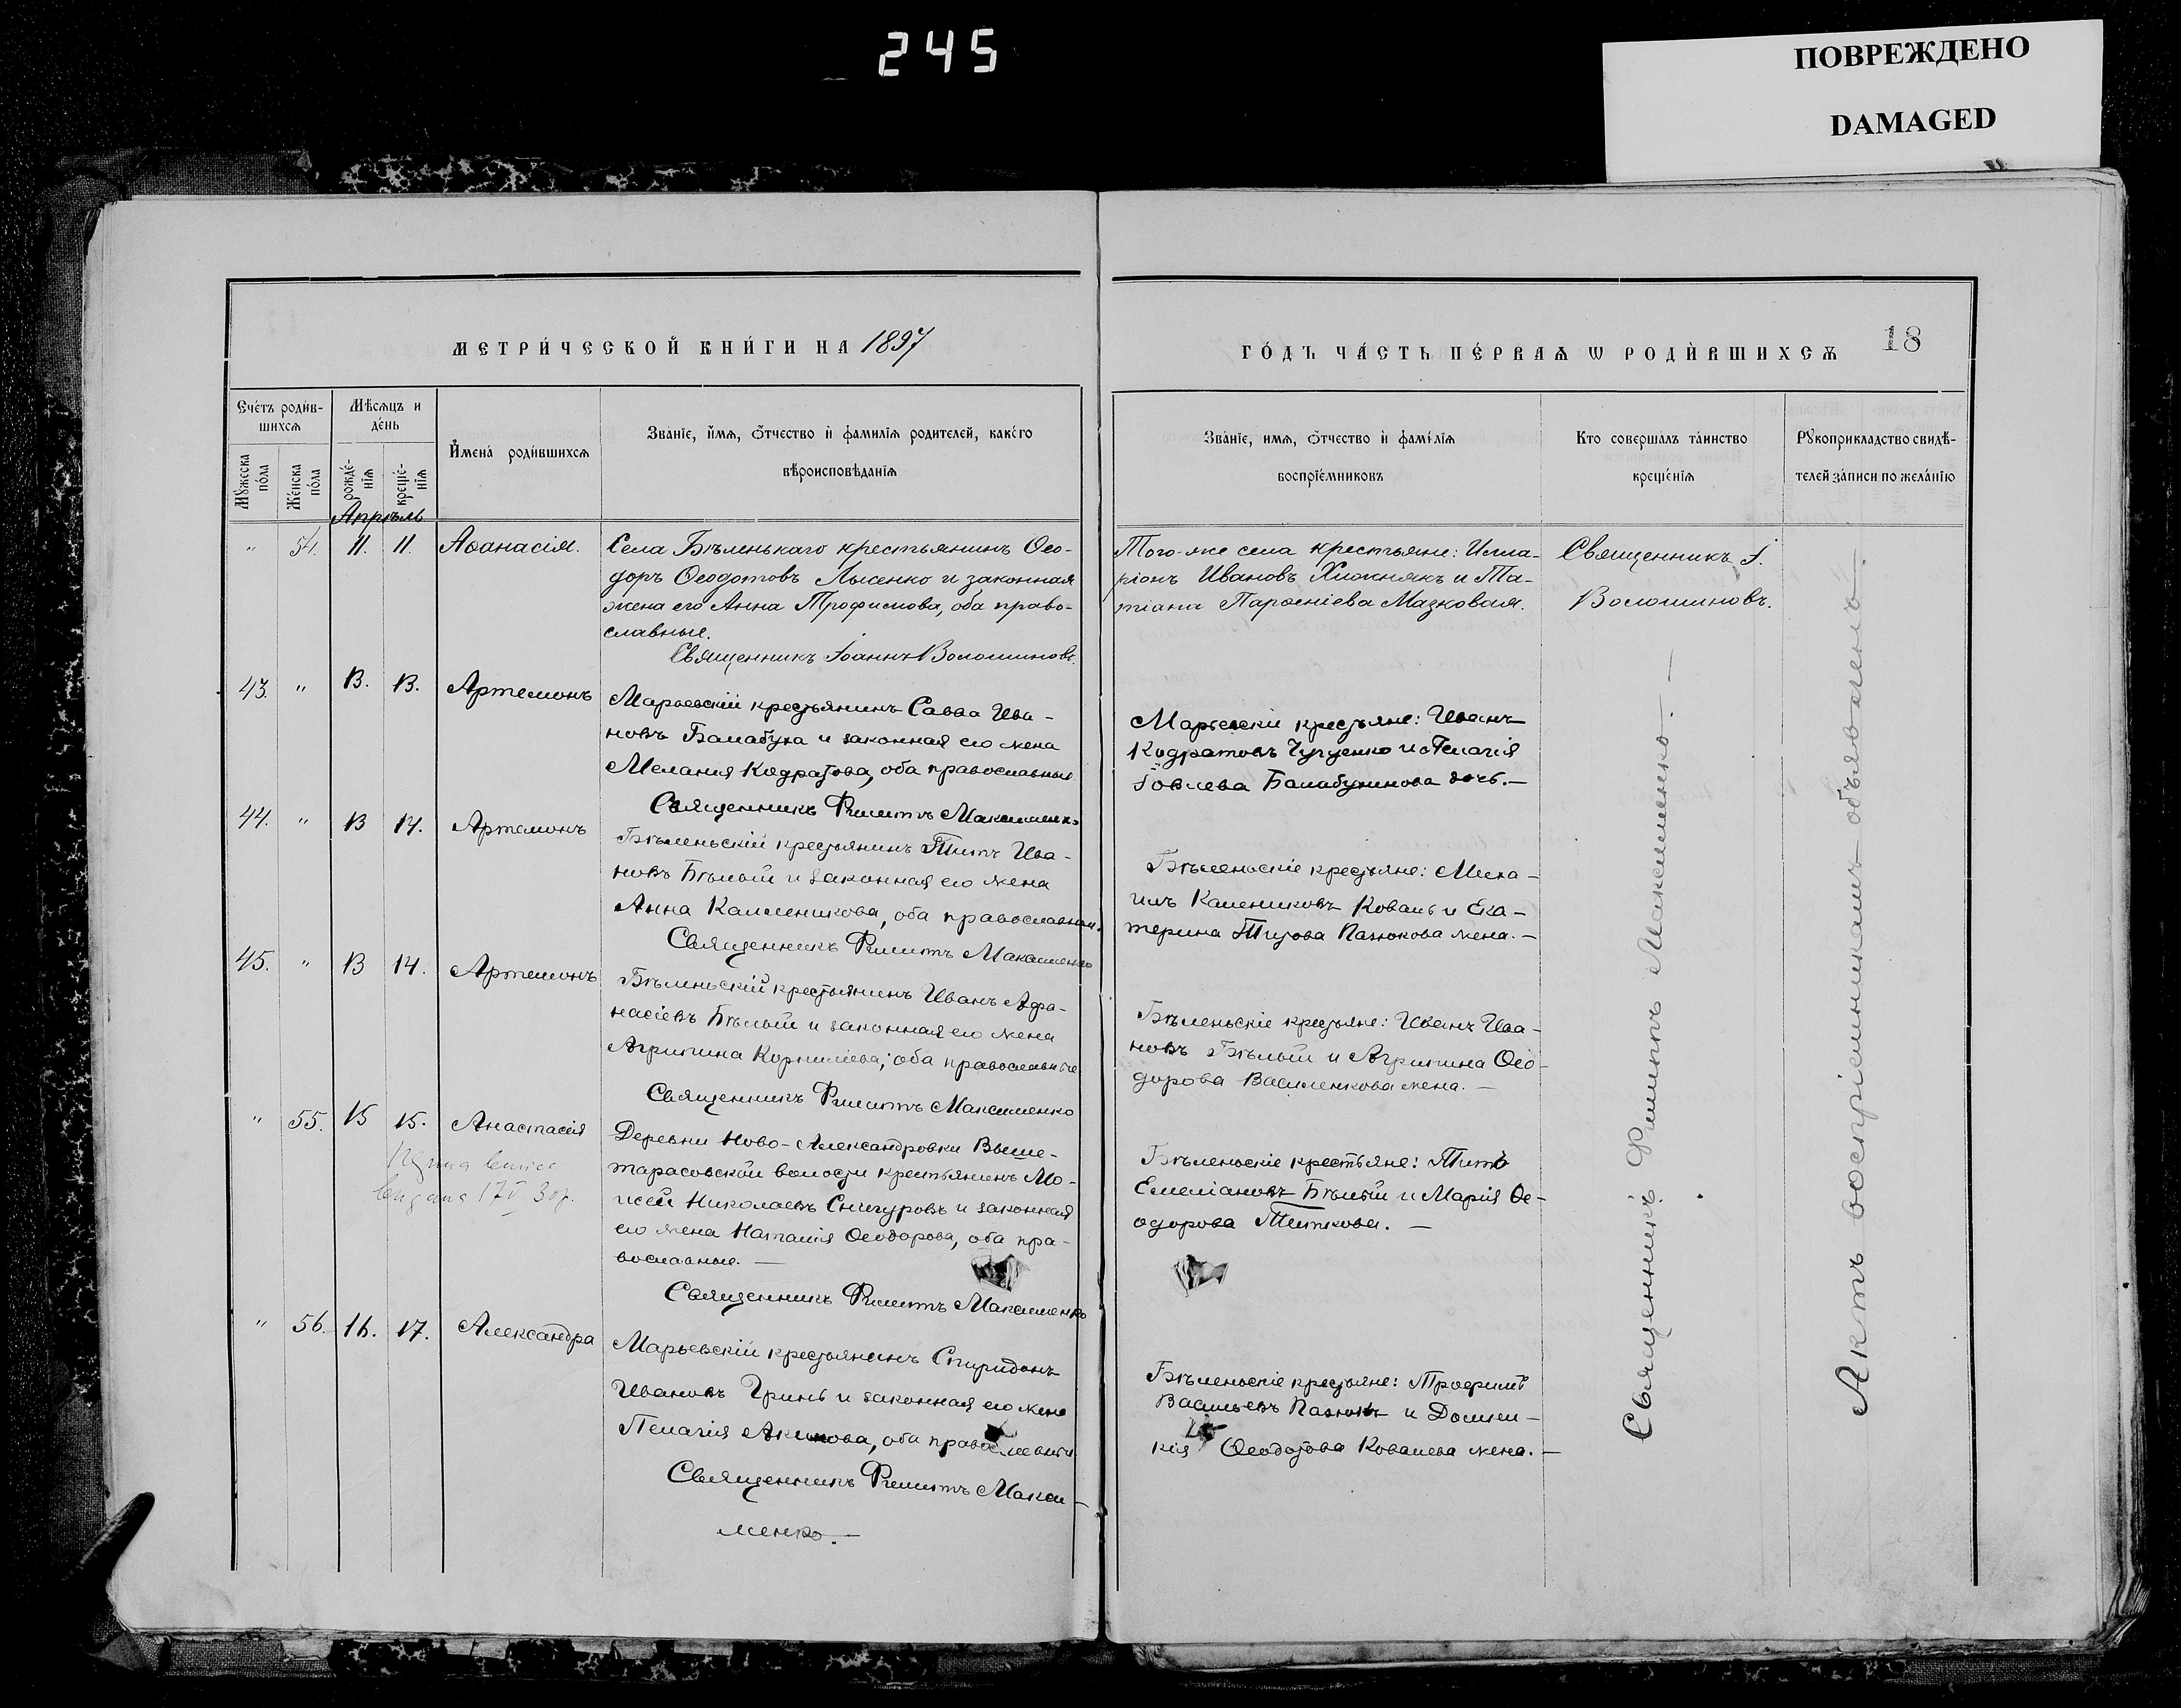 245
ПОВРЕЖДЕНО
DAMAGED
МЕТРИ́ЧЕСКОЙ КНИ́ГИ НА 1897
ГО́ДЪ ЧА́СТЬ ПЕ́РВАѦ Ѡ РОДИ́ВШИХСѦ
18
Сче́тъ роди́в-
шихсѧ
Мѣсѧцъ и
де́нь
Мꙋ́жеска
по́ла
Же́нска
по́ла
рожде́-
нїѧ
креще́-
нїѧ
И҆мена̀ роди́вшихсѧ
Зва́нїе, и҆́мѧ, ѻ҆́тчество и҆ фами́лїѧ роди́телей, како́гѡ
вѣроисповѣ́данїѧ
Зва́нїе, и҆́мѧ, ѻ҆́тчество и҆ фами́лїѧ
воспрїе́мниковъ
Кто соверша́лъ та́инство
креще́нїѧ
Рꙋкоприкла́дство свидѣ́-
телей за́писи по жела́нїю
Апрѣль
" 54. 11. 11. Аѳанасія.
Села Бѣленькаго крестьянинъ Ѳео-
доръ Ѳеодотовъ Лысенко и законная
жена его Анна Трофимова, оба право-
славные.
Священникъ Іоаннъ Волошиновъ.
Того-же села крестьяне: Илла-
ріонъ Ивановъ Хижнякъ и Та-
тіана Парѳеніева Мазковая.
Священникъ І.
Волошиновъ.
43. " 13. 13. Артемонъ
Марьевскій крестьянинъ Савва Ива-
новъ Балабуха и законная его жена
Мелания Кодратова, оба православные
Священникъ Филиппъ Максименко
Марьевскіе крестьяне: Иванъ
Кодратовъ и Пелагія
Іовлева Балабухинова дочь. —
44. " 13 14. Артемонъ
Бѣленьскій крестьянинъ Титъ Ива-
новъ Бѣлый и законная его жена
Анна Каленикова, оба православные.
Священникъ Филиппъ Максименко
Бѣленьскіе крестьяне: Миха-
илъ Калениковъ Коваль и Ека-
терина Титова Пазюкова жена. —
45. " 13 14. Артемонъ
Бѣленьскій крестьянинъ Иванъ Афа-
насіевъ Бѣлый и законная его жена
Агрипина Корниліева; оба православные
Священникъ Филиппъ Максименко
Бѣленьскіе крестьяне: Иванъ Ива-
новъ Бѣлый и Агрипина Ѳео-
дорова Василенкова жена. —
" 55. 15 15. Анастасія
17 г.
Деревни Ново-Александровки Выше-
тарасовской волости крестьянинъ Мо-
исей Николаевъ Снигуровъ и законная
его жена Наталія Ѳеодорова, оба пра-
вославные. —
Священникъ Филиппъ Максименко
Бѣленьскіе крестьяне: Титъ
Емеліановъ Бѣлый и Марія Ѳе-
одорова Титкова. —
" 56. 16. 17. Александра
Марьевскій крестьянинъ Спиридонъ
Ивановъ Гринь и законная его жена
Пелагія Акимова, оба православные
Священникъ Филиппъ Макси-
менко. —
Бѣленьскіе крестьяне: Трофимъ
Васильевъ Пазюкъ и Домни-
кія Ѳеодотова Ковалева жена. —
Священникъ Филиппъ Максименко. —
Актъ воспріемникамъ объявленъ.